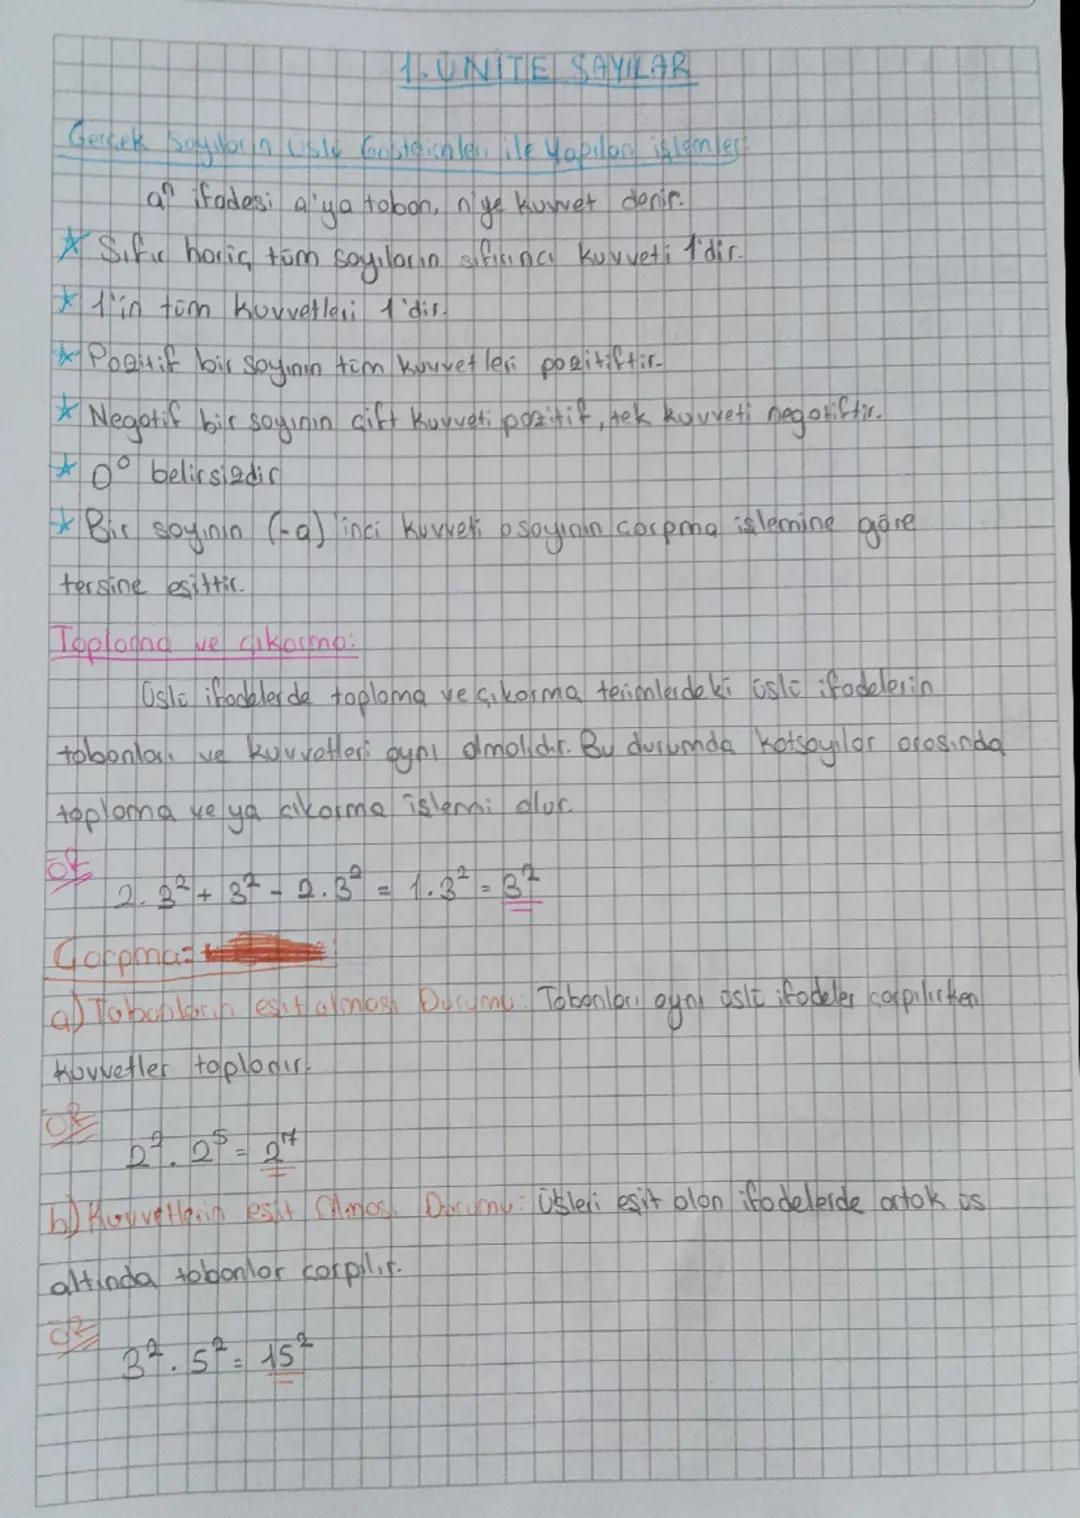 1. ÜNİTE SAYILAR
Gerçek Sayıların Üslü Gösterimleri ile Yapılan işlemler
aⁿ ifadesi a'ya taban, n'ye kuvvet denir.
* Sıfır hariç tüm sayıların sıfırıncı kuvveti 1'dir.
* 1'in tüm kuvvetleri 1'dir.
* Pozitif bir sayının tüm kuvvetleri pozitiftir.
* Negatif bir sayının çift kuvveti pozitif, tek kuvveti negatiftir.
* 0⁰ belirsizdir
* Bir sayının (-a)'inci kuvveti o sayının çarpma işlemine göre
tersine eşittir.
Toplama ve çıkarma:
Üslü ifadelerde toplama ve çıkarma terimlerdeki üslü ifadelerin
tabanları ve kuvvetleri aynı olmalıdır. Bu durumda katsayılar arasında
toplama ve ya çıkarma işlemi olur.
ÖR
2.3² + 3² - 2.3² = 1.3² = 3²
Çarpma:
a) Tabanların eşit olması Durumu: Tabanları aynı üslü ifadeler çarpılırken
kuvvetler toplanır.
ÖR
2² . 2⁵ = 2⁷
b) Kuvvetlerin eşit Olması Durumu: Üsleri eşit olan ifadelerde ortak üs
altında tabanlar çarpılır.
ÖR
3² . 5² = 15²